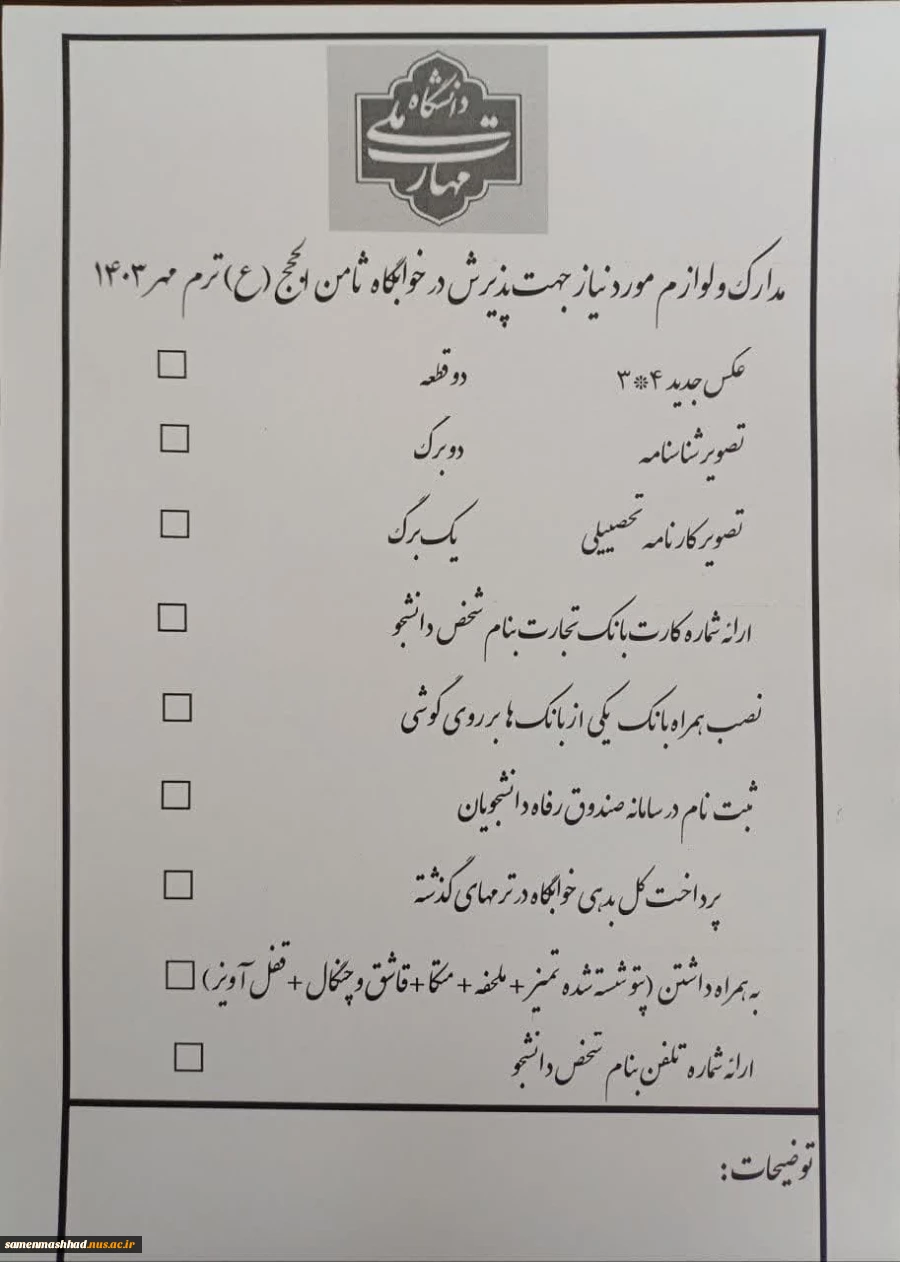 دانشگاه
ملی
مهارت
مدارک و لوازم مورد نیاز جهت پذیرش در خوابگاه ثامن الحجج (ع) ترم مهر ۱۴۰۳
عکس جدید ۴*۳ دو قطعه □
تصویر شناسنامه دو برگ □
تصویر کارنامه تحصیلی یک برگ □
ارائه شماره کارت بانک تجارت بنام شخص دانشجو □
نصب همراه بانک یکی از بانک ها بر روی گوشی □
ثبت نام در سامانه صندوق رفاه دانشجویان □
پرداخت کل بدهی خوابگاه در ترمهای گذشته □
به همراه داشتن (پتو شسته شده تمیز + ملحفه + متکا + قاشق و چنگال + قفل آویز) □
ارائه شماره تلفن بنام شخص دانشجو □
توضیحات :
samenmashhad.nus.ac.ir